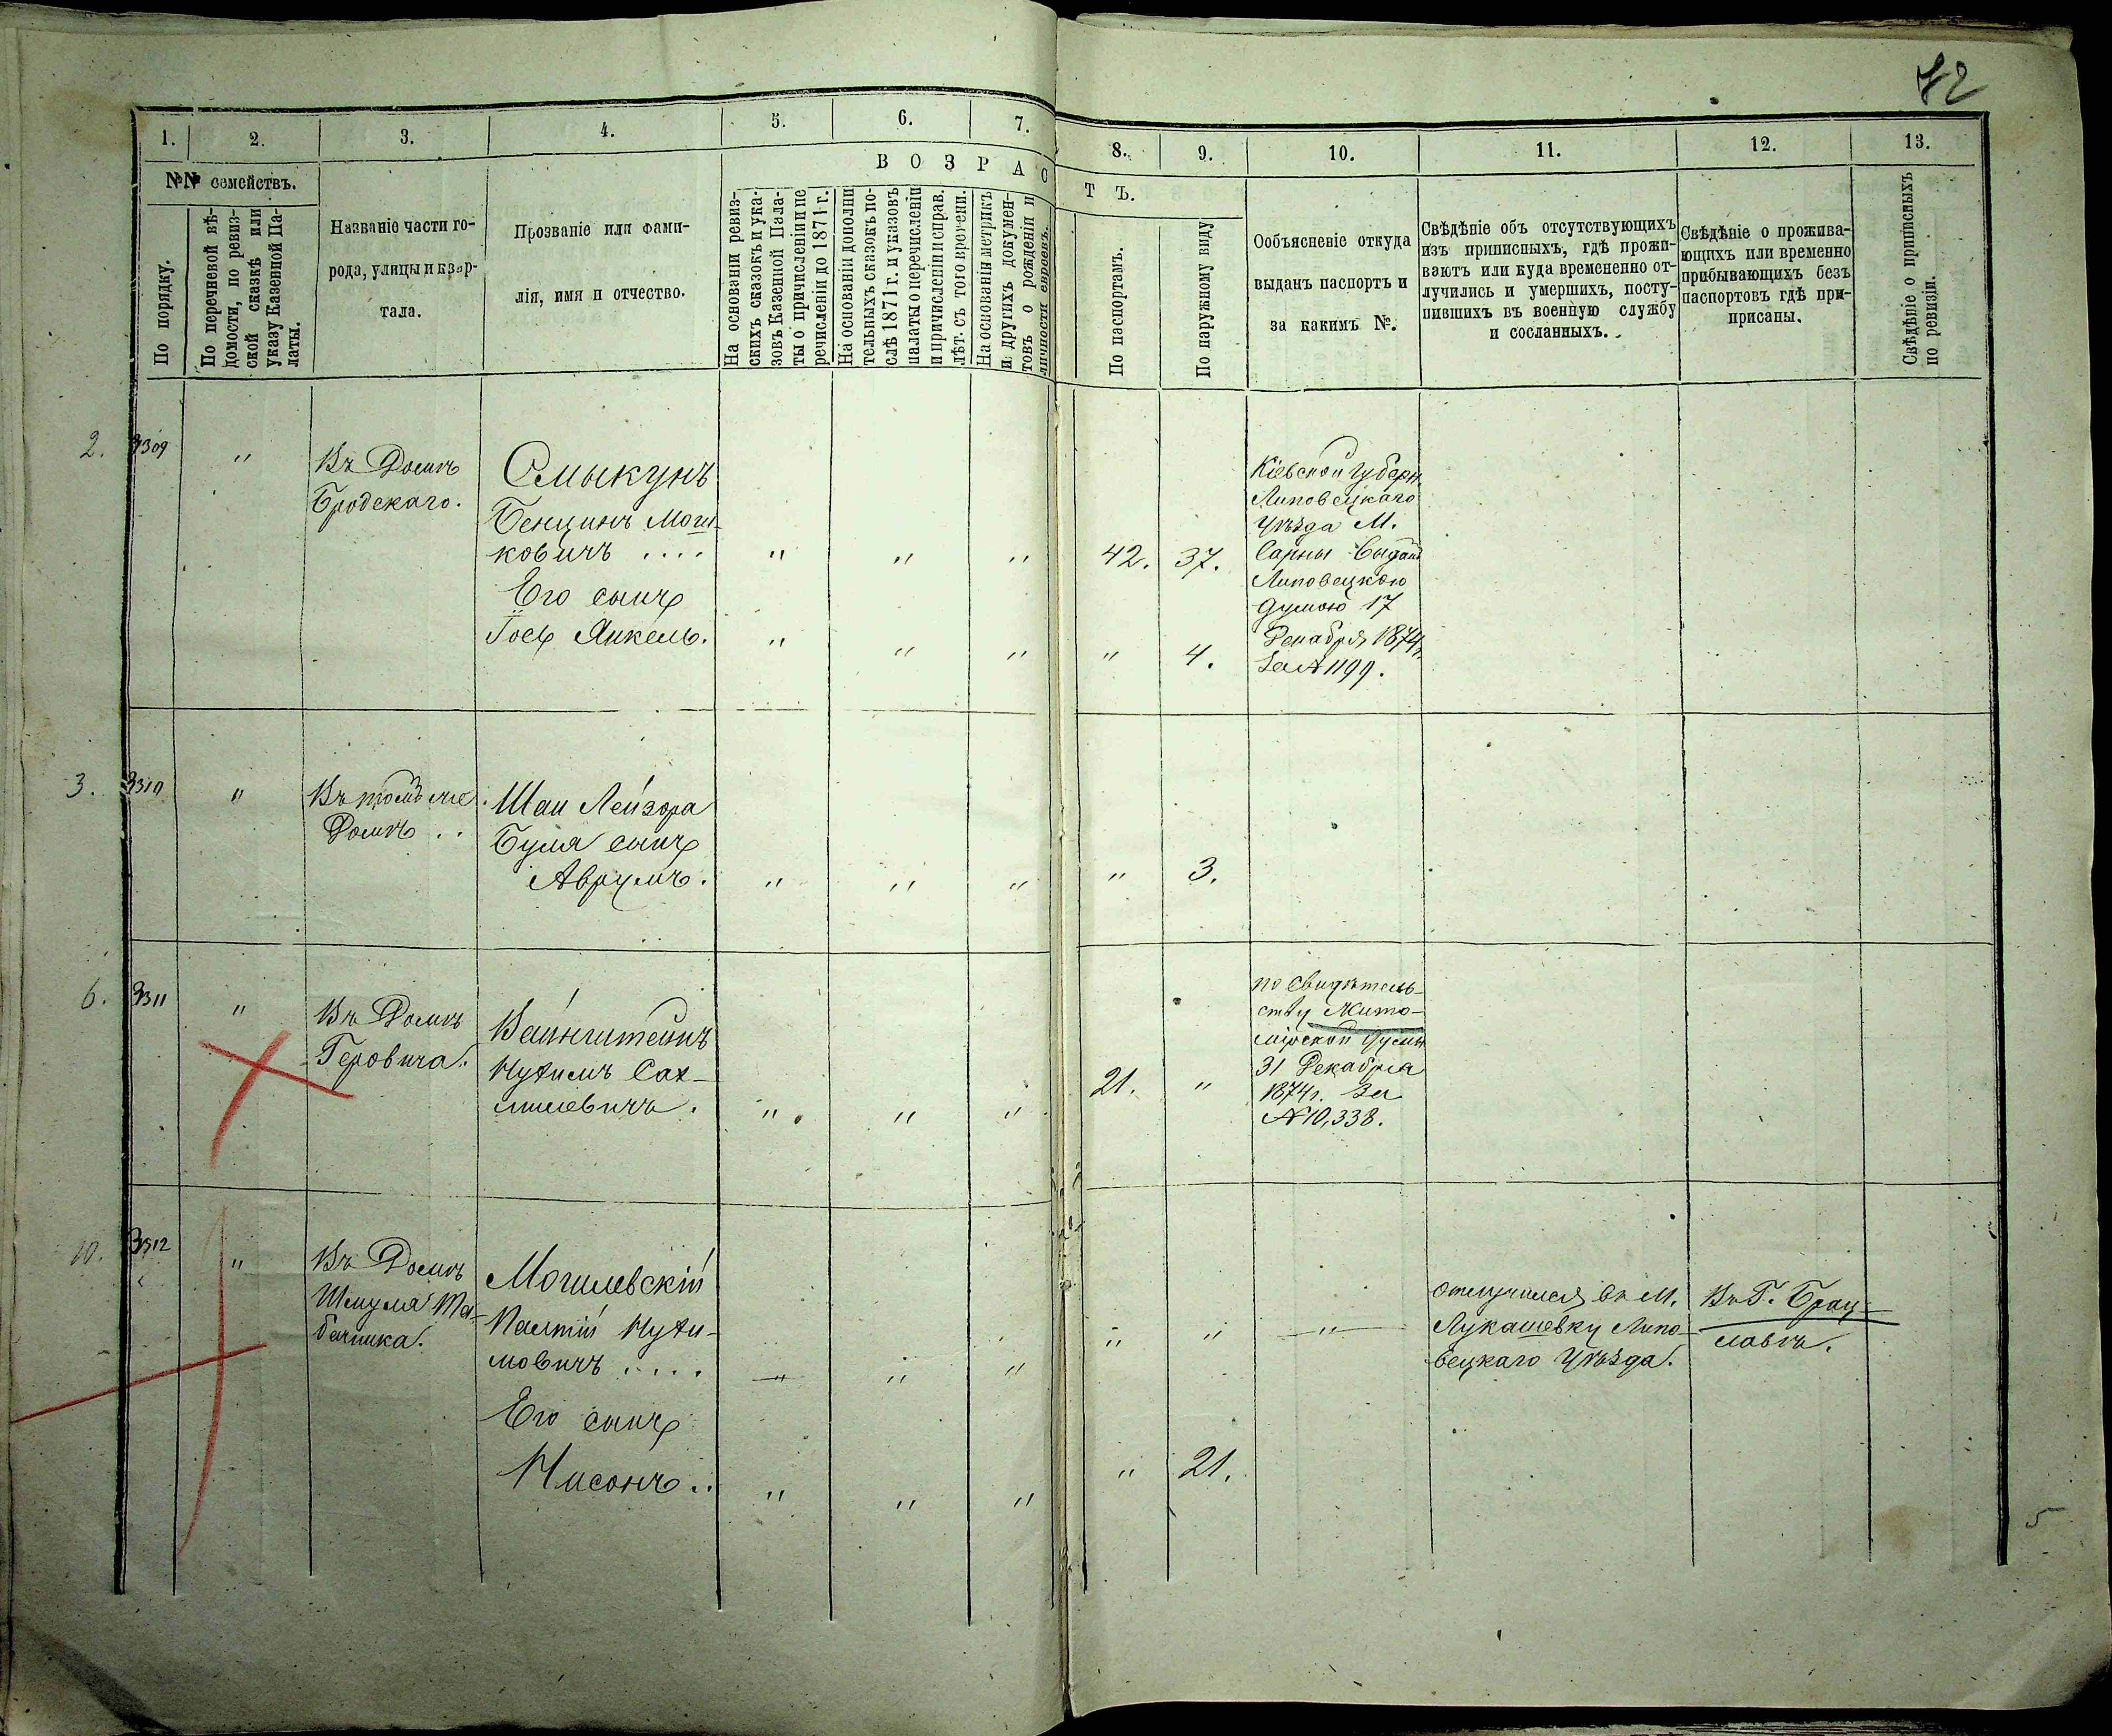 42
1. 2. 3. 4. 5. 6. 7. 8. 9. 10. 11. 12. 13.
№№ семействъ.
ВОЗРАСТЪ.
По порядку.
По перечневой вѣ-
домости, по ревиз-
ской сказкѣ или
указу Казенной Па-
латы.
Названіе части го-
рода, улицы и квар-
тала.
Прозваніе или фами-
лія, имя и отчество.
На основаніи ревиз-
скихъ сказокъ и ука-
зовъ Казенной Пала-
ты о причисленіи и пе
речисленіи до 1871 г.
На основаніи дополни
тельныхъ сказокъ по-
слѣ 1871 г. и указовъ
палаты о перечисленіи
и причисленіи исправ.
лѣт. съ того времени.
На основаніи метрикъ
и другихъ докумен-
товъ о рожденіи и
личности евреевъ.
По паспортамъ.
По наружному виду
Ообъясненіе откуда
выданъ паспортъ и
за какимъ №.
Свѣдѣніе объ отсутствующихъ
изъ приписныхъ, гдѣ прожи-
ваютъ или куда временено от-
лучились и умершихъ, посту-
пившихъ въ военную службу
и сосланныхъ.
Свѣдѣніе о прожива-
ющихъ или временно
прибывающихъ безъ
паспортовъ гдѣ при-
писаны.
Свѣдѣніе о приписныхъ
по ревизіи.
2. 3309 "
Въ Домѣ
Бродскаго.
Смыкунъ
Бенцинъ Мош-
ковичъ .... " " " 42. 37.
Его сынъ
Іось Янкель. " " " " 4.
Кіевской Губерн.
Липовецкаго
Уѣзда М.
Сарны Выданъ
Липовецкою
Думою 17
Декабря 1874 г.
За № 1199.
3. 3310 "
Въ томъ же
Домѣ ..
Шаи Лейзора
Буля сынъ
Аврумъ. " " " " 3.
6. 3311 "
Въ Домѣ
Геровича.
Вайнштейнъ
Нухимъ Сах-
нилевичъ. " " " 21. "
по Свидѣтель-
ству Жито-
мірской Думы
31 Декабря
1874 г. За
№ 10,338.
10. 3312 "
Въ Домѣ
Шмуля Та-
бачника.
Могилевскій
Палтій Нухи-
мовичъ .... " " " " " "
Его сынъ
Нисонъ .. " " " " 21.
отлучился въ М.
Лукашевку Липо-
вецкаго Уѣзда.
Въ Г. Брац-
лавѣ.
5